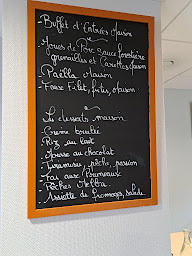 Buffet d'Entrées Maison
- Joues de Porc Sauce forestière
grenailles et Carottes Maison
- Paëlla Maison
- Faux Filet, frites, Maison
Les desserts maison
- Crème brûlée
- Riz au lait
- Mousse au chocolat
- Tiramisu, pêche, passion
- Far aux Pruneaux
- Pêches Melba
- Assiette de fromages, salade